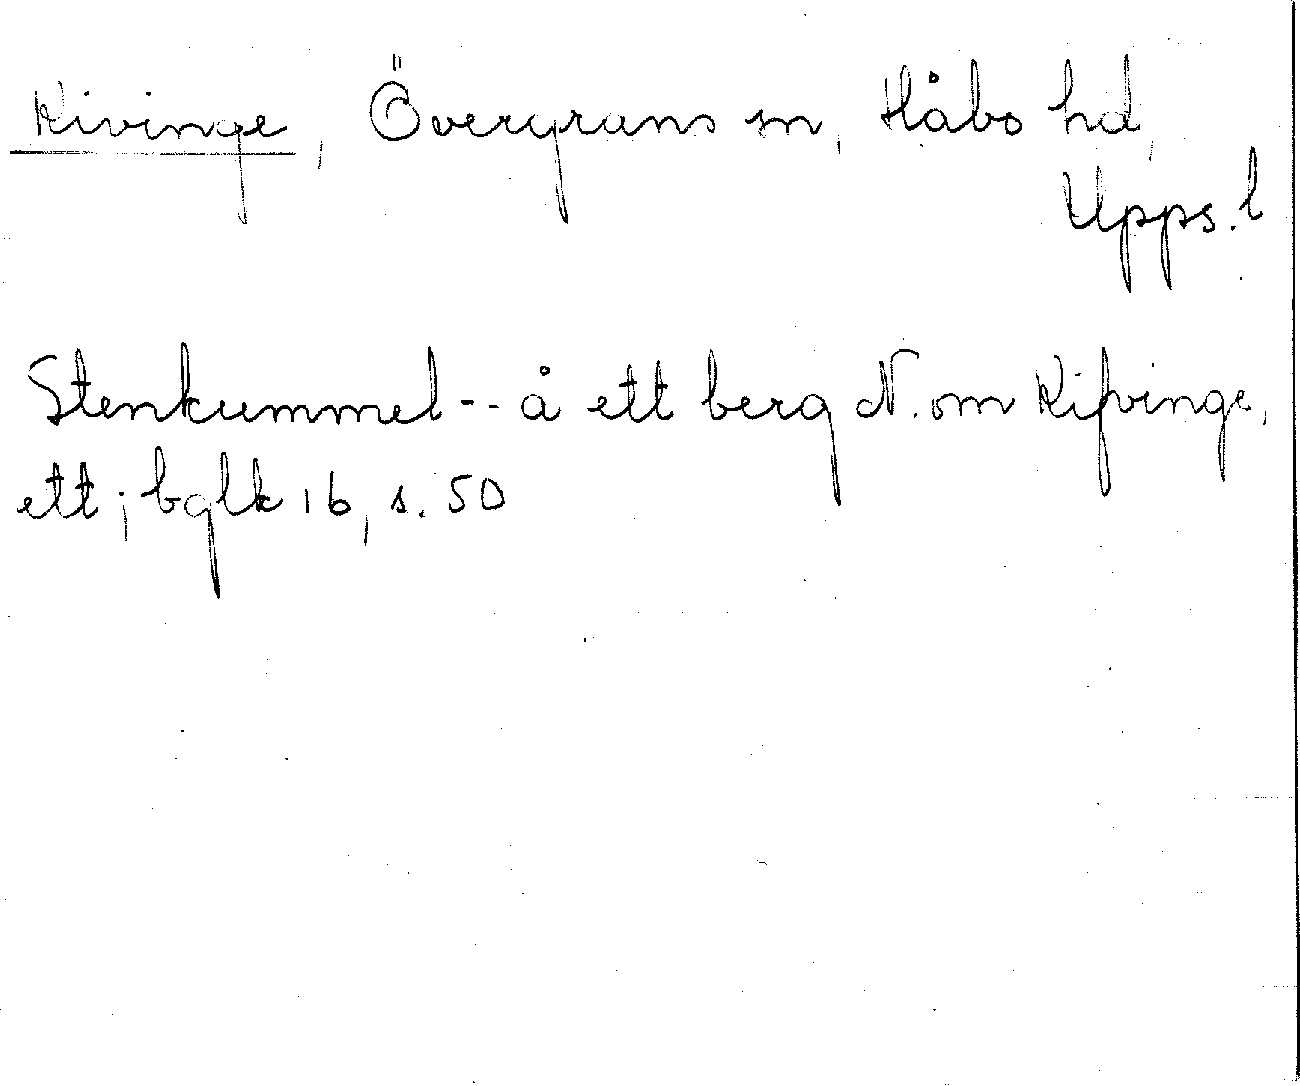 Kivinge, Övergrans sn, Håbo hd,
Upps. l
Stenkummel -- å ett berg N. om Kifvinge,
ett; bglk 16, s. 50